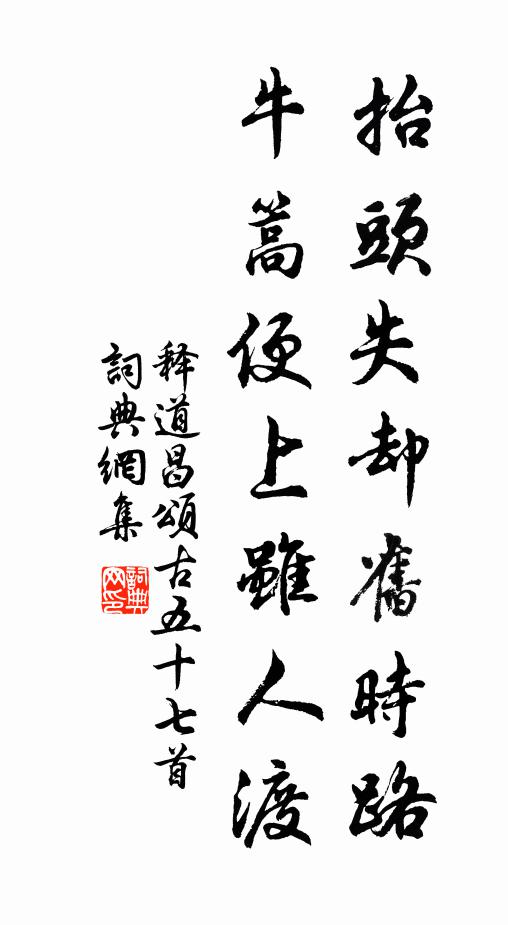 抬頭失却舊時路
牛篙便上雖人渡
释道昌頌古五十七首
詞典網集
詞典网印